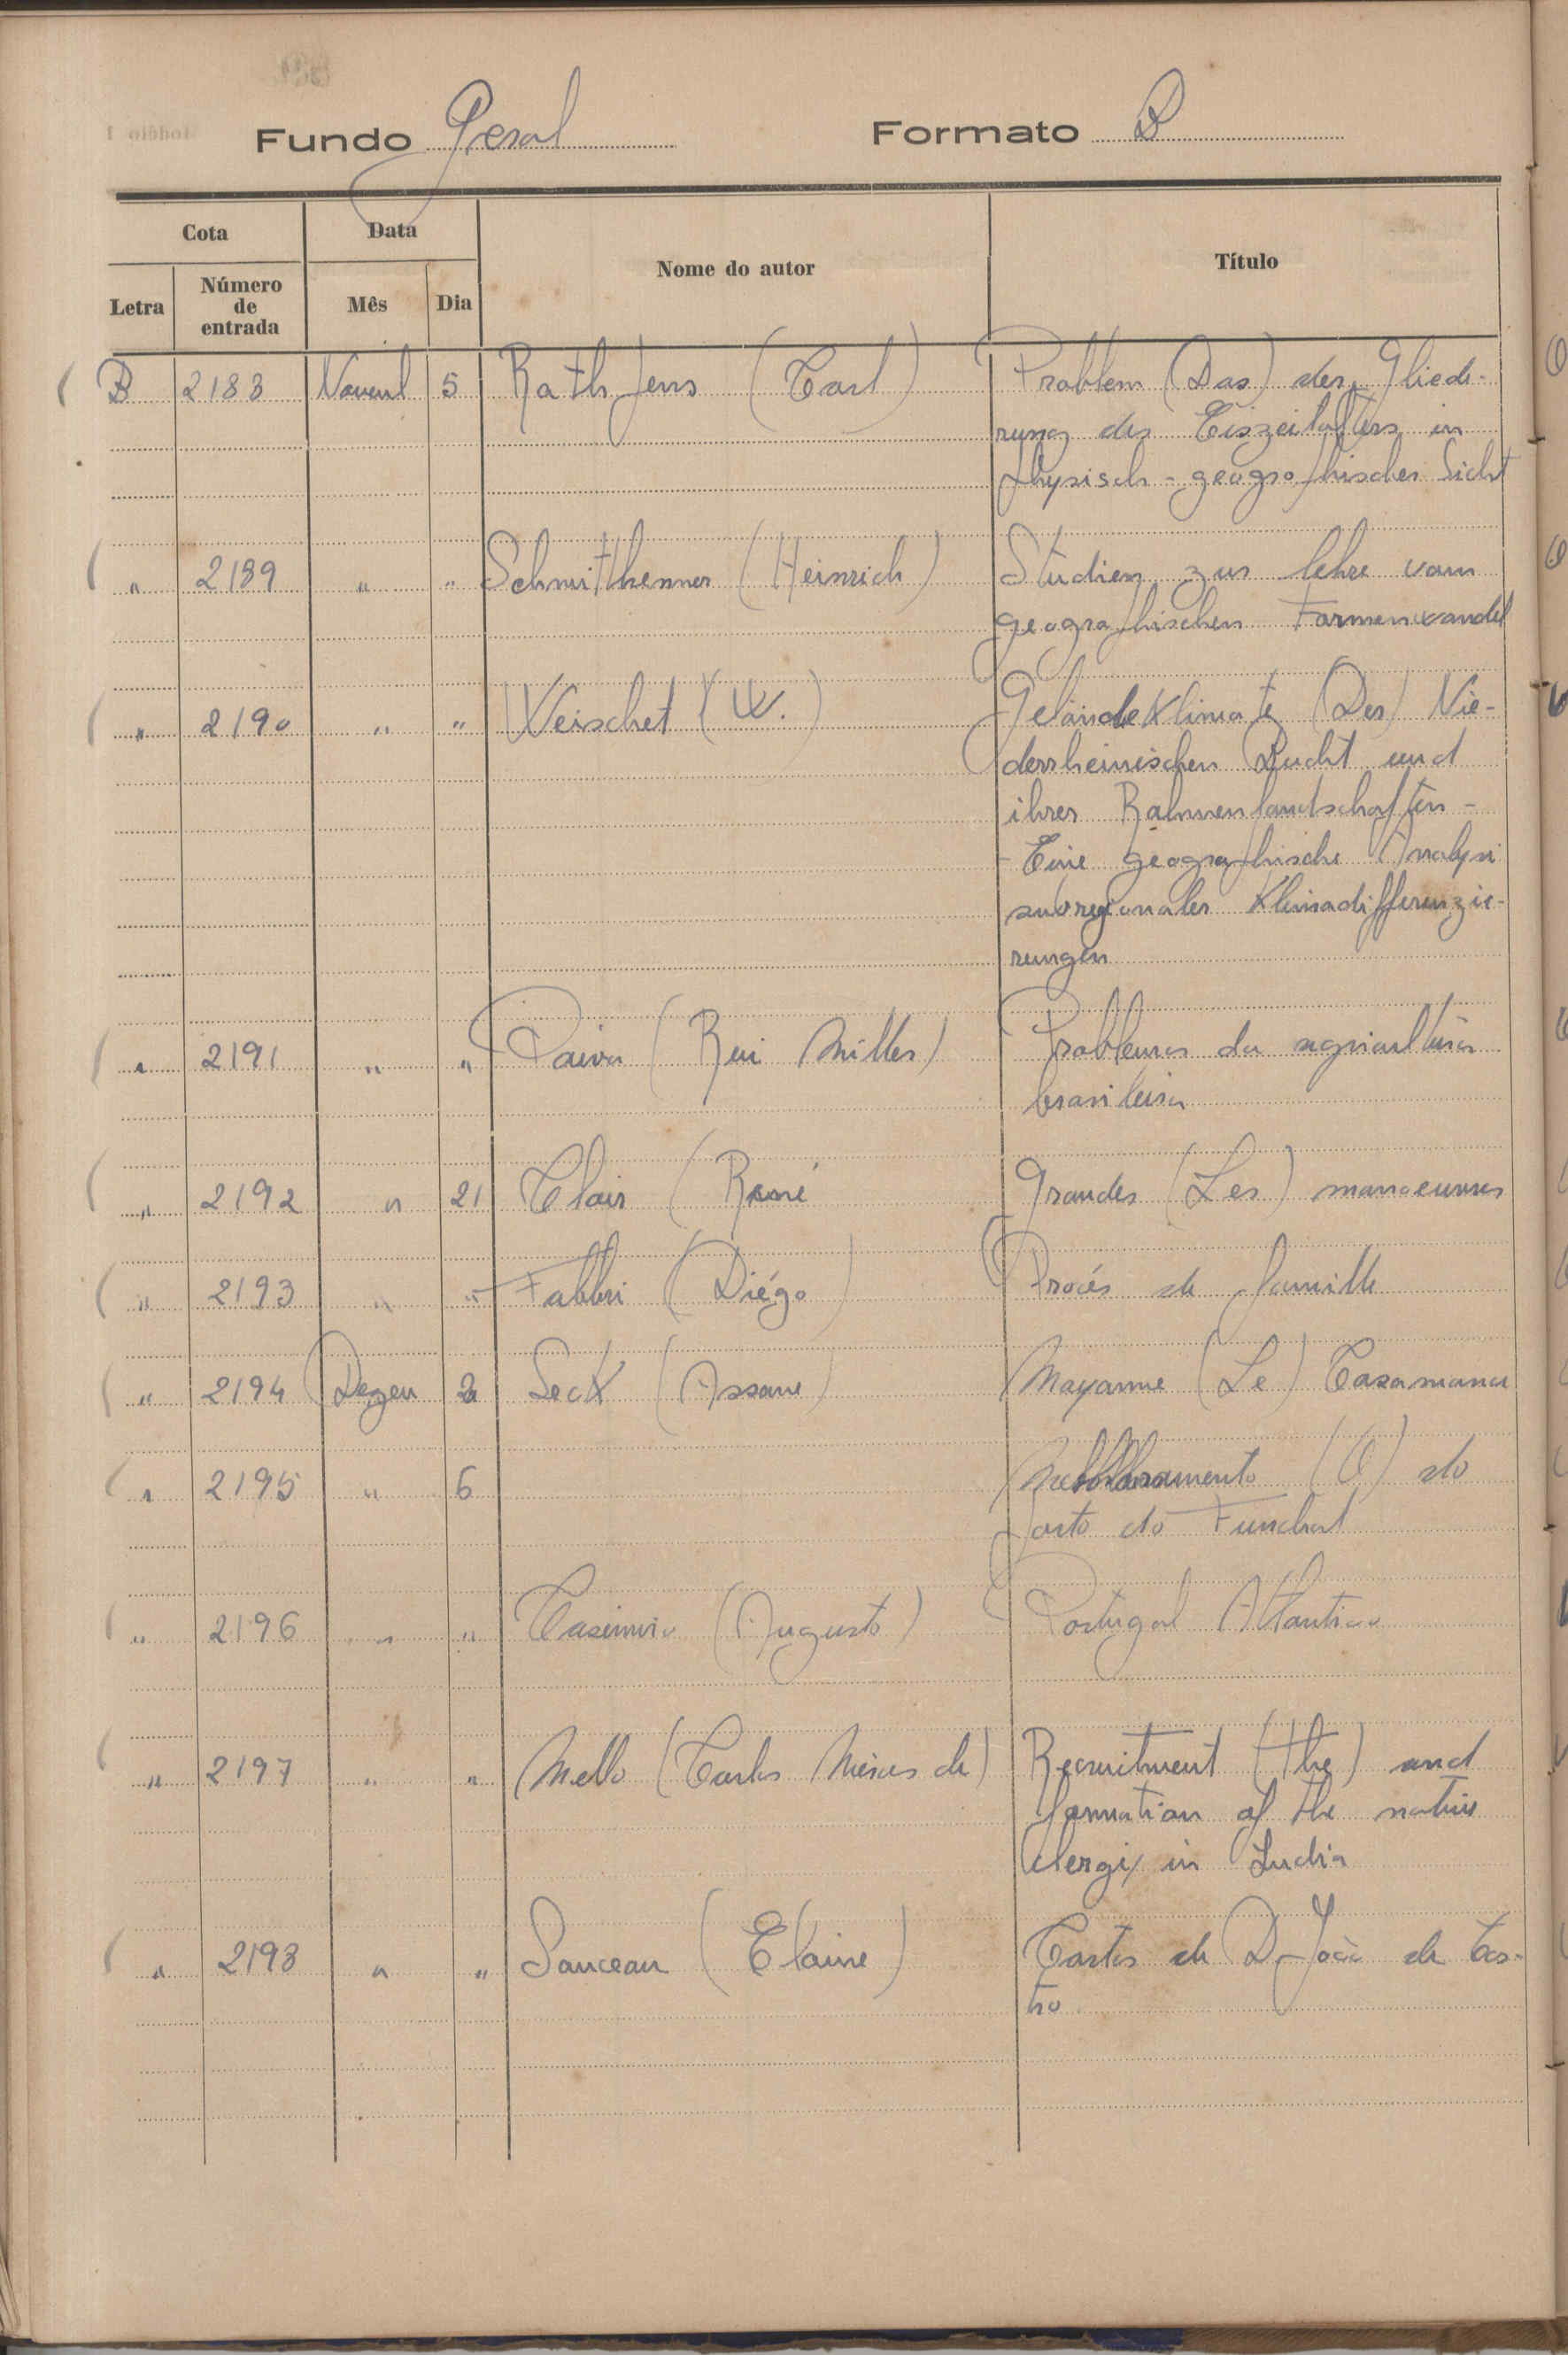 Fundo Geral Formato B
Cota Data Nome do autor Título
Letra Número de entrada Mês Dia
B 2188 Novemb 5 Rathjens (Carl) Problem (Das) der Gliede-
rung des Eiszeitalters in
physisch-geographischer Sicht
" 2189 " " Schmitthenner (Heinrich) Studien zur lehre vom
geographischen Formenwandel
" 2190 " " Weischet (W.) Geländeklimate (Der) Nie-
derrheinischen Bucht und
ihrer Rahmenlandschaften -
- Eine geographische Analyse
subregionaler Klimadifferenzie-
rungen
" 2191 " " Paiva (Rui Miller) Problemas da agricultura
brasileira
" 2192 " 21 Clair (René Grandes (Les) manoeuvres
" 2193 " " Fabbri (Diégo) Procés de famille
" 2194 Dezem 2 Seck (Assane) Moyenne (La) Casamance
" 2195 " 6 Melhoramento (O) do
porto do Funchal
" 2196 " " Casimiro (Augusto) Portugal Atlantico
" 2197 " " Mello (Carlos Merces de) Recruitment (the) and
formation of the native
clergy in India
" 2198 " " Sanceau (Elaine) Cartas de D. João de Cas-
tro